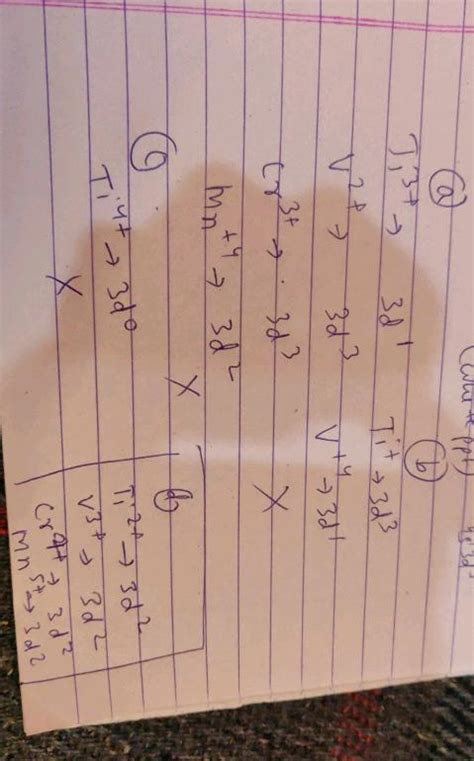 (a)
Ti³⁺ → 3d¹
V²⁺ → 3d³
Cr³⁺ → 3d³
Mn⁺⁴ → 3d²
X
(b)
Ti⁺ → 3d³
V⁺⁴ → 3d¹
X
(c)
Ti⁴⁺ → 3d⁰
X
(d)
Ti²⁺ → 3d²
V³⁺ → 3d²
Cr⁴⁺ → 3d²
Mn⁵⁺ → 3d²